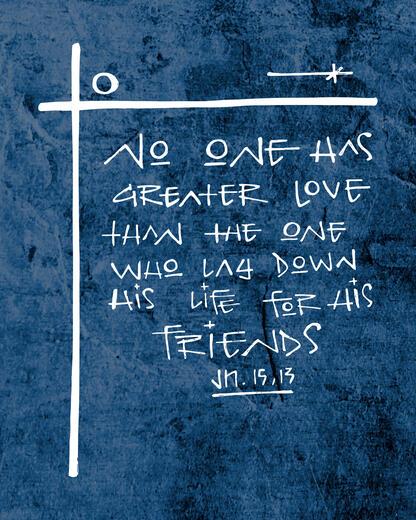 NO ONE HAS
GREATER LOVE
THAN THE ONE
WHO LAY DOWN
HIS LIFE FOR HIS
FRIENDS
JN. 15,13